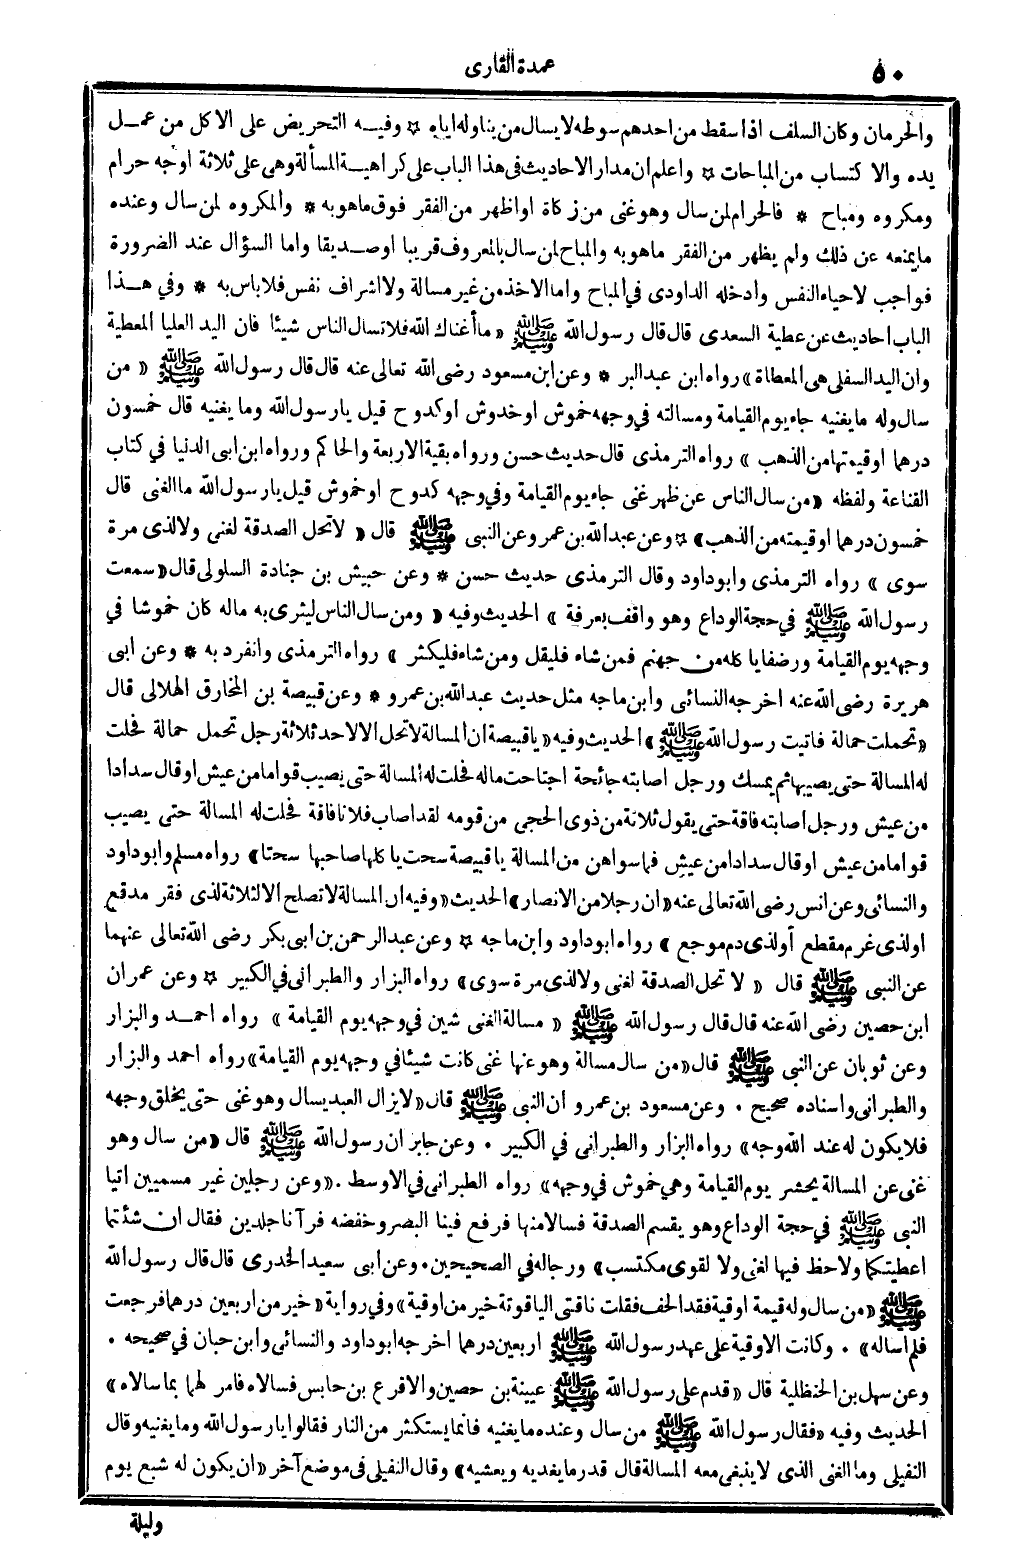 ٥٠
عمدة القارى
والحرمان وكان السلف اذا سقط من احدهم سوطه لا يسال من يناوله اياه ☆ وفيه التحريض على الاكل من عمل
يده والاكتساب من المباحات ☆ واعلم ان مدار الاحاديث فى هذا الباب على كراهية المسألة وهى على ثلاثة اوجه حرام
ومكروه ومباح * فالحرام لمن سال وهو غنى من زكاة او اظهر من الفقر فوق ماهو به * والمكروه لمن سال وعنده
مايمنعه عن ذلك ولم يظهر من الفقر ماهو به والمباح لمن سال بالمعروف قريبا او صديقا واما السؤال عند الضرورة
فواجب لاحياء النفس وأدخله الداودى في المباح واما الاخذ من غير مسالة ولا اشراف نفس فلا باس به * وفي هذا
الباب احاديث عن عطية السعدى قال قال رسول الله ﷺ « ما أغناك الله فلا تسال الناس شيئا فان اليد العليا المعطية
وان اليد السفلى هى المعطاة » رواه ابن عبد البر * وعن ابن مسعود رضى الله تعالى عنه قال قال رسول الله ﷺ « من
سال وله مايغنيه جاء يوم القيامة ومسالته في وجهه خموش او خدوش او كدوح قيل يارسول الله وما يغنيه قال خمسون
درهما او قيمتها من الذهب » رواه الترمذى قال حديث حسن ورواه بقية الاربعة والحاكم ورواه ابن ابى الدنيا في كتاب
القناعة ولفظه « من سال الناس عن ظهر غنى جاء يوم القيامة وفي وجهه كدوح او خموش قيل يارسول الله ما الغنى قال
خمسون درهما او قيمته من الذهب » ☆ وعن عبد الله بن عمر وعن النبى ﷺ قال « لا تحل الصدقة لغنى ولا لذى مرة
سوى » رواه الترمذى وابو داود وقال الترمذى حديث حسن * وعن حبيش بن جنادة السلولى قال « سمعت
رسول الله ﷺ في حجة الوداع وهو واقف بعرفة » الحديث وفيه « ومن سال الناس ليثرى به ماله كان خموشا في
وجهه يوم القيامة ورضفا يا كله من جهنم فمن شاء فليقل ومن شاء فليكثر » رواه الترمذى وانفرد به * وعن ابى
هريرة رضى الله عنه اخرجه النسائى وابن ماجه مثل حديث عبد الله بن عمرو * وعن قبيصة بن المخارق الهلالى قال
« تحملت حمالة فاتيت رسول الله ﷺ » الحديث وفيه « يا قبيصة ان المسالة لا تحل الا لاحد ثلاثة رجل تحمل حمالة فحلت
له المسالة حتى يصيبها ثم يمسك ورجل اصابته جائحة اجتاحت ماله فحلت له المسالة حتى يصيب قواما من عيش او قال سدادا
من عيش ورجل اصابته فاقة حتى يقول ثلاثة من ذوى الحجى من قومه لقد اصاب فلانا فاقة فحلت له المسالة حتى يصيب
قواما من عيش او قال سدادا من عيش فما سواهن من المسالة يا قبيصة سحت يا كلها صاحبها سحتا » رواه مسلم وابو داود
والنسائى وعن انس رضى الله تعالى عنه « ان رجلا من الانصار » الحديث « وفيه ان المسالة لا تصلح الا لثلاثة لذى فقر مدقع
او لذى غرم مقطع أو لذى دم موجع » رواه ابو داود وابن ماجه ☆ وعن عبد الرحمن بن ابى بكر رضى الله تعالى عنهما
عن النبى ﷺ قال « لا تحل الصدقة لغنى ولا لذى مرة سوى » رواه البزار والطبرانى في الكبير ☆ وعن عمران
ابن حصين رضى الله عنه قال قال رسول الله ﷺ « مسالة الغنى شين في وجهه يوم القيامة » رواه احمد والبزار
وعن ثوبان عن النبى ﷺ قال « من سال مسالة وهو عنها غنى كانت شيئا في وجهه يوم القيامة » رواه احمد والبزار
والطبرانى واسناده صحيح . وعن مسعود بن عمرو ان النبى ﷺ قال « لا يزال العبد يسال وهو غنى حتى يخلق وجهه
فلا يكون له عند الله وجه » رواه البزار والطبرانى في الكبير . وعن جابر ان رسول الله ﷺ قال « من سال وهو
غنى عن المسالة يحشر يوم القيامة وهي خموش في وجهه » رواه الطبرانى فى الاوسط . « وعن رجلين غير مسميين اتيا
النبى ﷺ في حجة الوداع وهو يقسم الصدقة فسالا منها فرفع فينا البصر وخفضه فرآنا جلدين فقال ان شئتما
اعطيتكما ولا حظ فيها لغنى ولا لقوى مكتسب » ورجاله في الصحيحين . وعن ابى سعيد الخدرى قال قال رسول الله
ﷺ « من سال وله قيمة اوقية فقد الحف فقلت ناقتى الياقوتة خير من اوقية » وفي رواية « خير من اربعين درهما فرجعت
فلم اساله » . وكانت الاوقية على عهد رسول الله ﷺ اربعين درهما اخرجه ابو داود والنسائى وابن حبان في صحيحه .
وعن سهل بن الحنظلية قال « قدم على رسول الله ﷺ عيينة بن حصين والاقرع بن حابس فسالاه فامر لهما بما سالاه »
الحديث وفيه « فقال رسول الله ﷺ من سال وعنده ما يغنيه فانما يستكثر من النار فقالوا يارسول الله وما يغنيه وقال
النفيلى وما الغنى الذى لا ينبغى معه المسالة قال قدر ما يغديه ويعشيه » وقال النفيلى فى موضع آخر « ان يكون له شبع يوم
وليلة